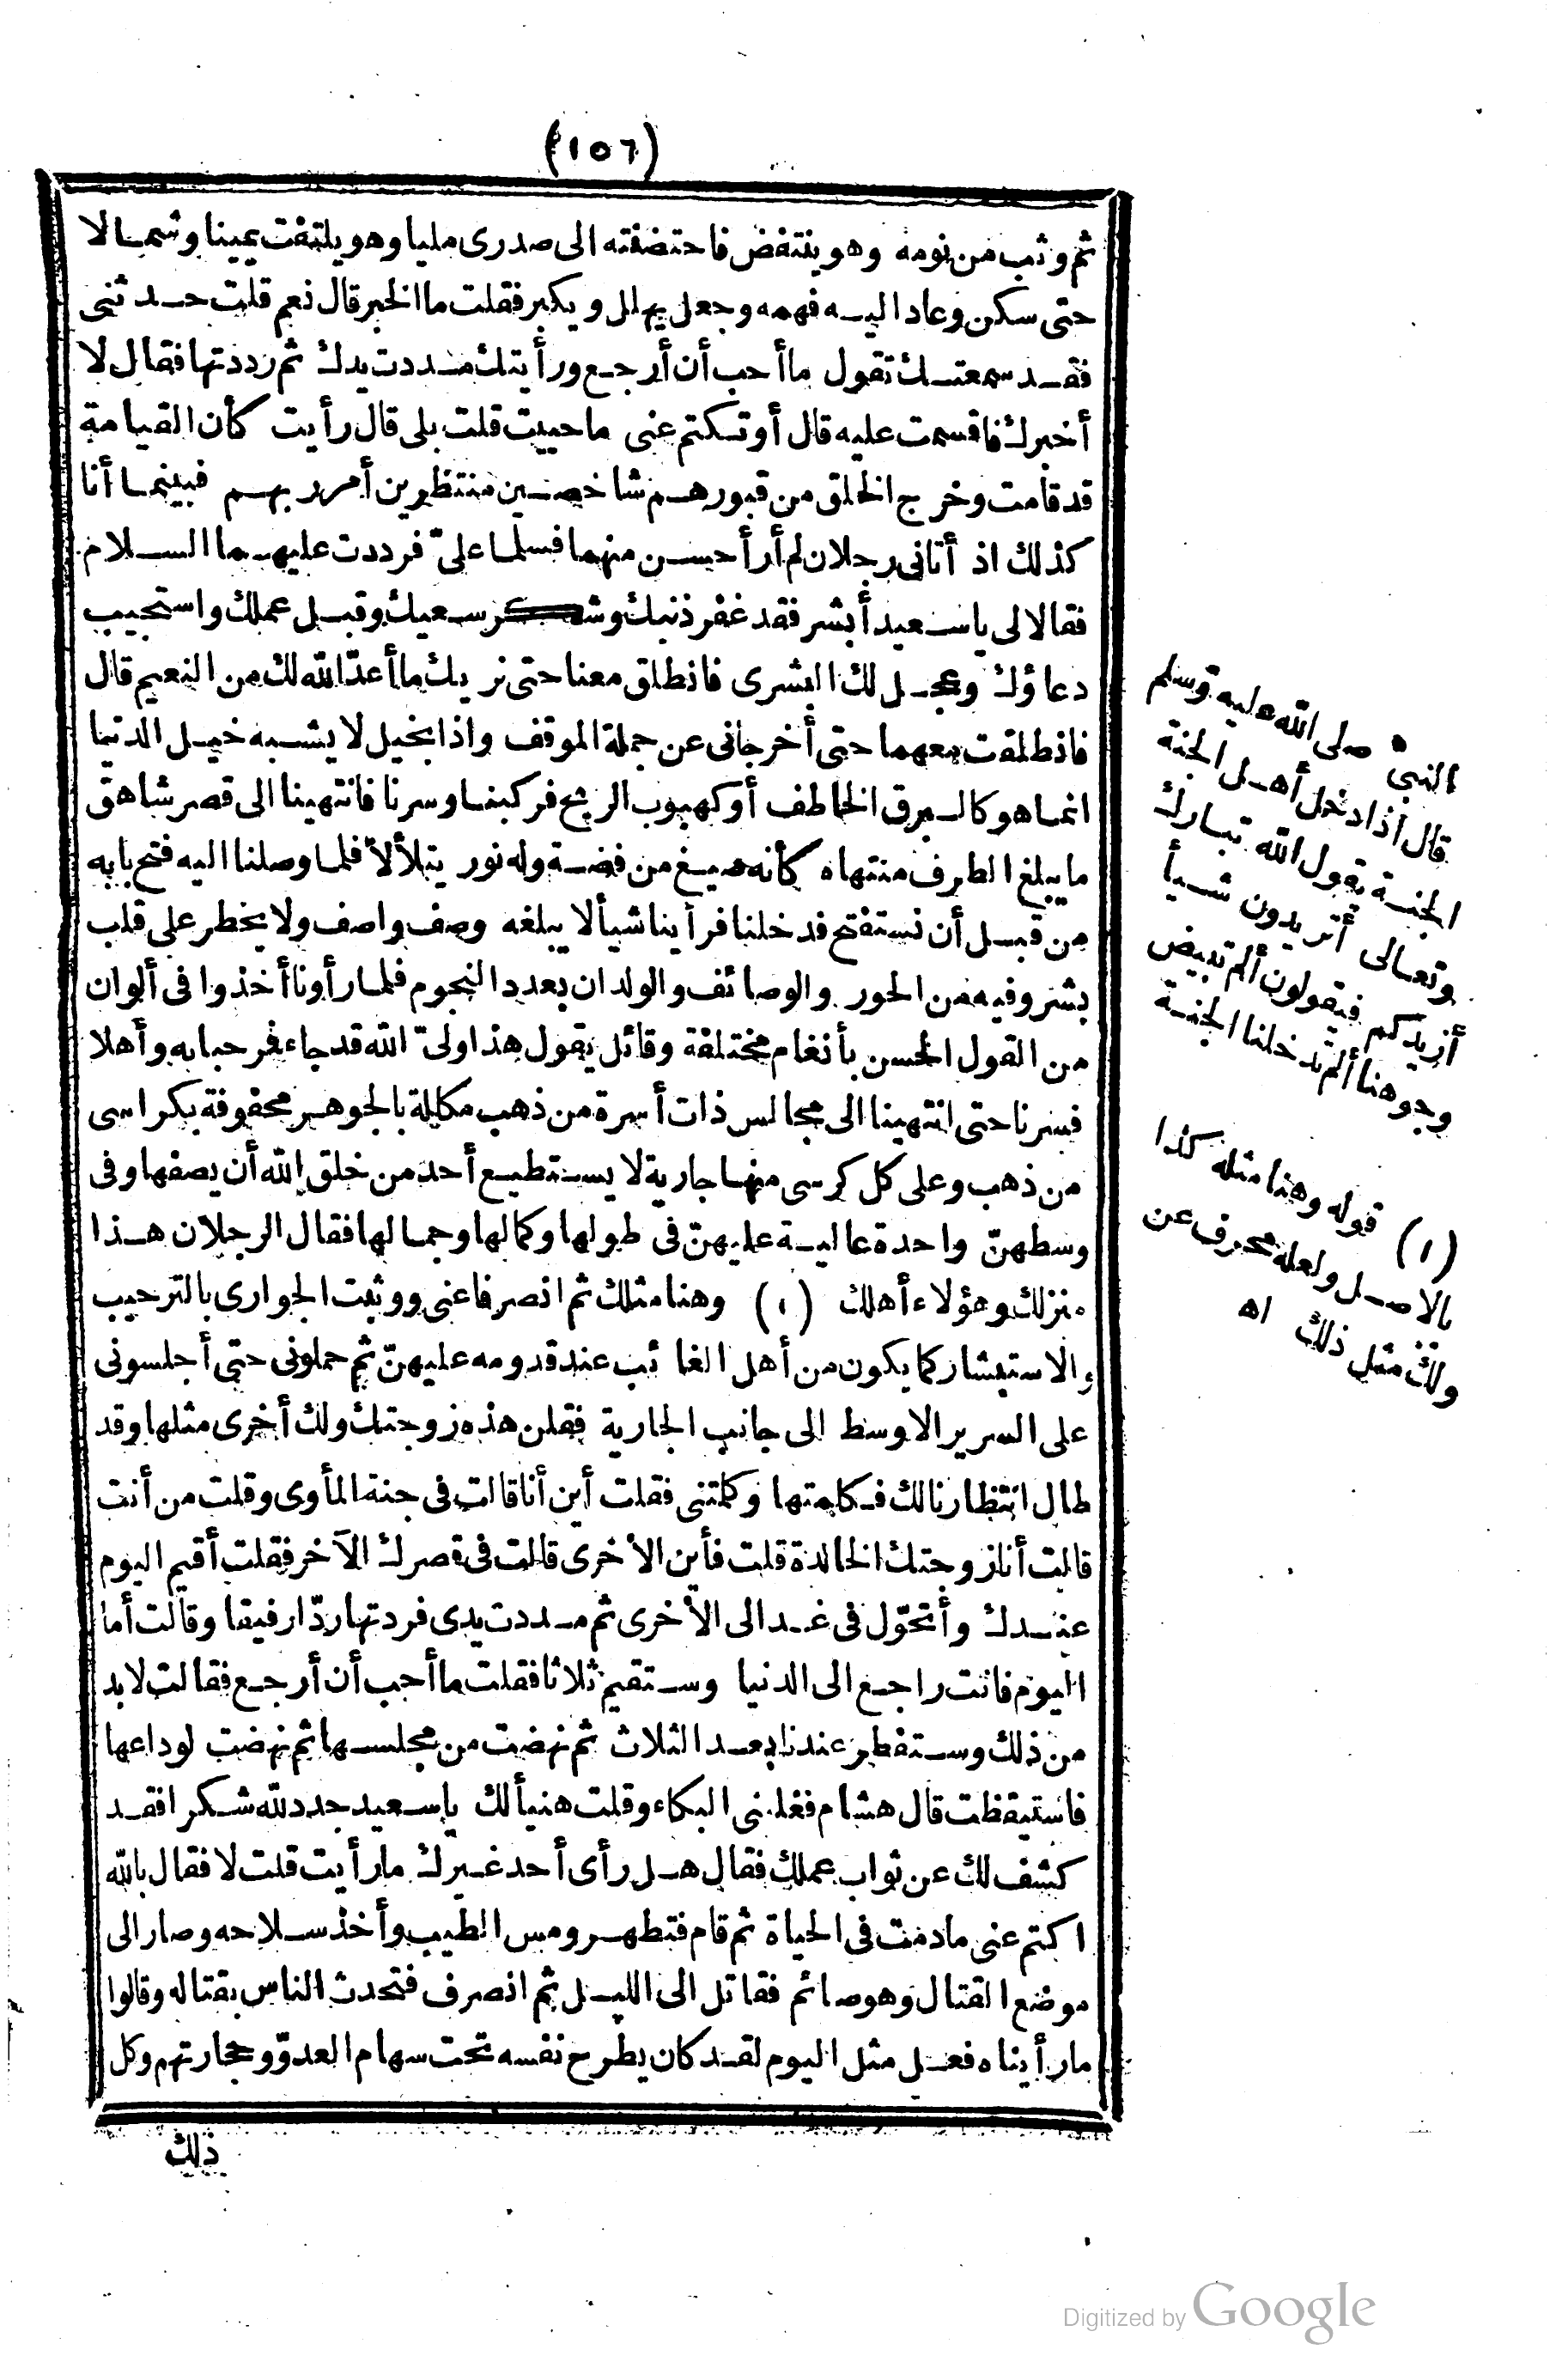 (١٥٦)
ثم وثب من نومه وهو ينتفض فاحتضنته الى صدرى مليا وهو يلتفت يمينا وشمالا
حتى سكن وعاد اليه فهمه وجعل يهلل ويكبر فقلت ما الخبر قال نعم قلت حدثنى
فقد سمعتك تقول ما أحب أن أرجع ورأيتك مددت يدك ثم رددتها فقال لا
أخبرك فاقسمت عليه قال أوتكتم عنى ما حييت قلت بلى قال رأيت كأن القيامة
قد قامت وخرج الخلق من قبورهم شاخصين منتظرين أمر ربهم فبينما أنا
كذلك اذ أتانى رجلان لم أر أحسن منهما فسلما علىّ فرددت عليهما السلام
فقالا لى ياسعيد أبشر فقد غفر ذنبك وشكر سعيك وقبل عملك واستجيب
دعاؤك وعجل لك البشرى فانطلق معنا حتى نريك ما أعدّ الله لك من النعيم قال
فانطلقت معهما حتى أخرجانى عن جملة الموقف واذا بخيل لا يشبه خيل الدنيا
انما هو كالبرق الخاطف أو كهبوب الريح فركبنا وسرنا فانتهينا الى قصر شاهق
ما يبلغ الطرف منتهاه كأنه صيغ من فضة وله نور يتلألأ فلما وصلنا اليه فتح بابه
من قبل أن نستفتح فدخلنا فرأينا شيأ لا يبلغه وصف واصف ولا يخطر على قلب
بشر وفيه من الحور والوصائف والولدان بعدد النجوم فلما رأونا أخذوا فى ألوان
من القول الحسن بأنغام مختلفة وقائل يقول هذا ولىّ الله قد جاء فمرحبا به وأهلا
فسرنا حتى انتهينا الى مجالس ذات أسرة من ذهب مكللة بالجوهر محفوفة بكراسى
من ذهب وعلى كل كرسى منها جارية لا يستطيع أحد من خلق الله أن يصفها وفى
وسطهنّ واحدة عالية عليهنّ فى طولها وكمالها وجمالها فقال الرجلان هذا
منزلك وهؤلاء أهلك (١) وهنا مثلك ثم انصرفا عنى ووثبت الجوارى بالترحيب
والاستبشار كما يكون من أهل الغائب عند قدومه عليهنّ ثم حملونى حتى أجلسونى
على السرير الاوسط الى جانب الجارية فقلن هذه زوجتك ولك أخرى مثلها وقد
طال انتظارنا لك فكلمتها وكلمتنى فقلت أين أنا قالت فى جنة المأوى وقلت من أنت
قالت أنا زوجتك الخالدة قلت فأين الأخرى قالت فى قصرك الآخر فقلت أقيم اليوم
عندك وأتحوّل فى غد الى الأخرى ثم مددت يدى فردتها ردّا رفيقا وقالت أما
اليوم فانت راجع الى الدنيا وستقيم ثلاثا فقلت ما أحب أن أرجع فقالت لا بد
من ذلك وستفطر عندنا بعد الثلاث ثم نهضت من مجلسها ثم نهضت لوداعها
فاستيقظت قال هشام فغلبنى البكاء وقلت هنيأ لك ياسعيد جدد لله شكرا فقد
كشف لك عن ثواب عملك فقال هل رأى أحد غيرك ما رأيت قلت لا فقال بالله
اكتم عنى مادمت فى الحياة ثم قام فتطهر ومس الطيب وأخذ سلاحه وصار الى
موضع القتال وهو صائم فقاتل الى الليل ثم انصرف فتحدث الناس بقتاله وقالوا
ما رأيناه فعل مثل اليوم لقد كان يطرح نفسه تحت سهام العدوّ وحجارتهم وكل
ذلك
النبى صلى الله عليه وسلم
قال اذا دخل أهل الجنة
الجنة يقول الله تبارك
وتعالى أتريدون شيأ
أزيدكم فيقولون ألم تبيض
وجوهنا ألم تدخلنا الجنة
(١) قوله وهنا مثله كذا
بالاصل ولعله محرف عن
ولك مثل ذلك اه
Digitized by Google